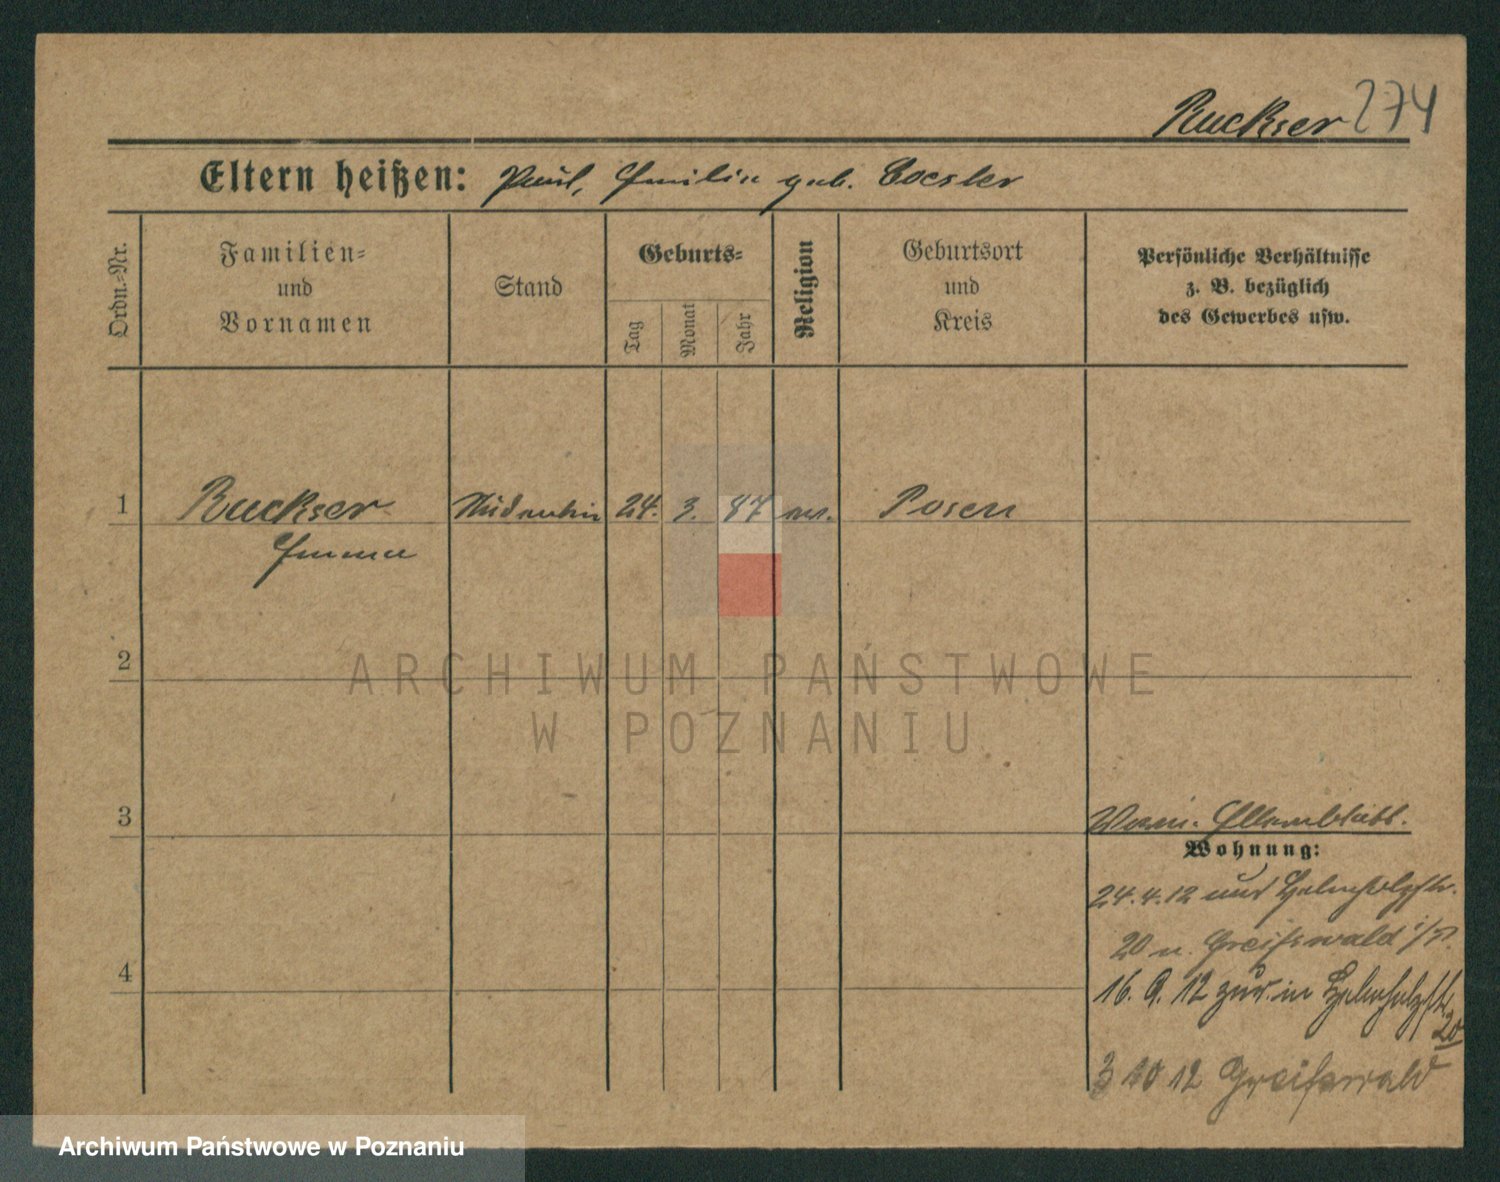 Ruckser 274
Eltern heißen: Paul, Emilie geb. Coester
Ordn.-Nr.
Familien-
und
Vornamen
Stand
Geburts-
Tag
Monat
Jahr
Religion
Geburtsort
und
Kreis
Persönliche Verhältnisse
z. B. bezüglich
des Gewerbes usw.
1 Ruckser Studentin 24. 3. 87 ev. Posen
Emma
2
ARCHIWUM PAŃSTWOWE
W POZNANIU
3
Wohnung:
24.4.12 Helmholzstr.
20 n. Greifswald i/P.
4
16. 9. 12 zur. in Helmholzstr.
20
3 10 12 Greifswald
Archiwum Państwowe w Poznaniu